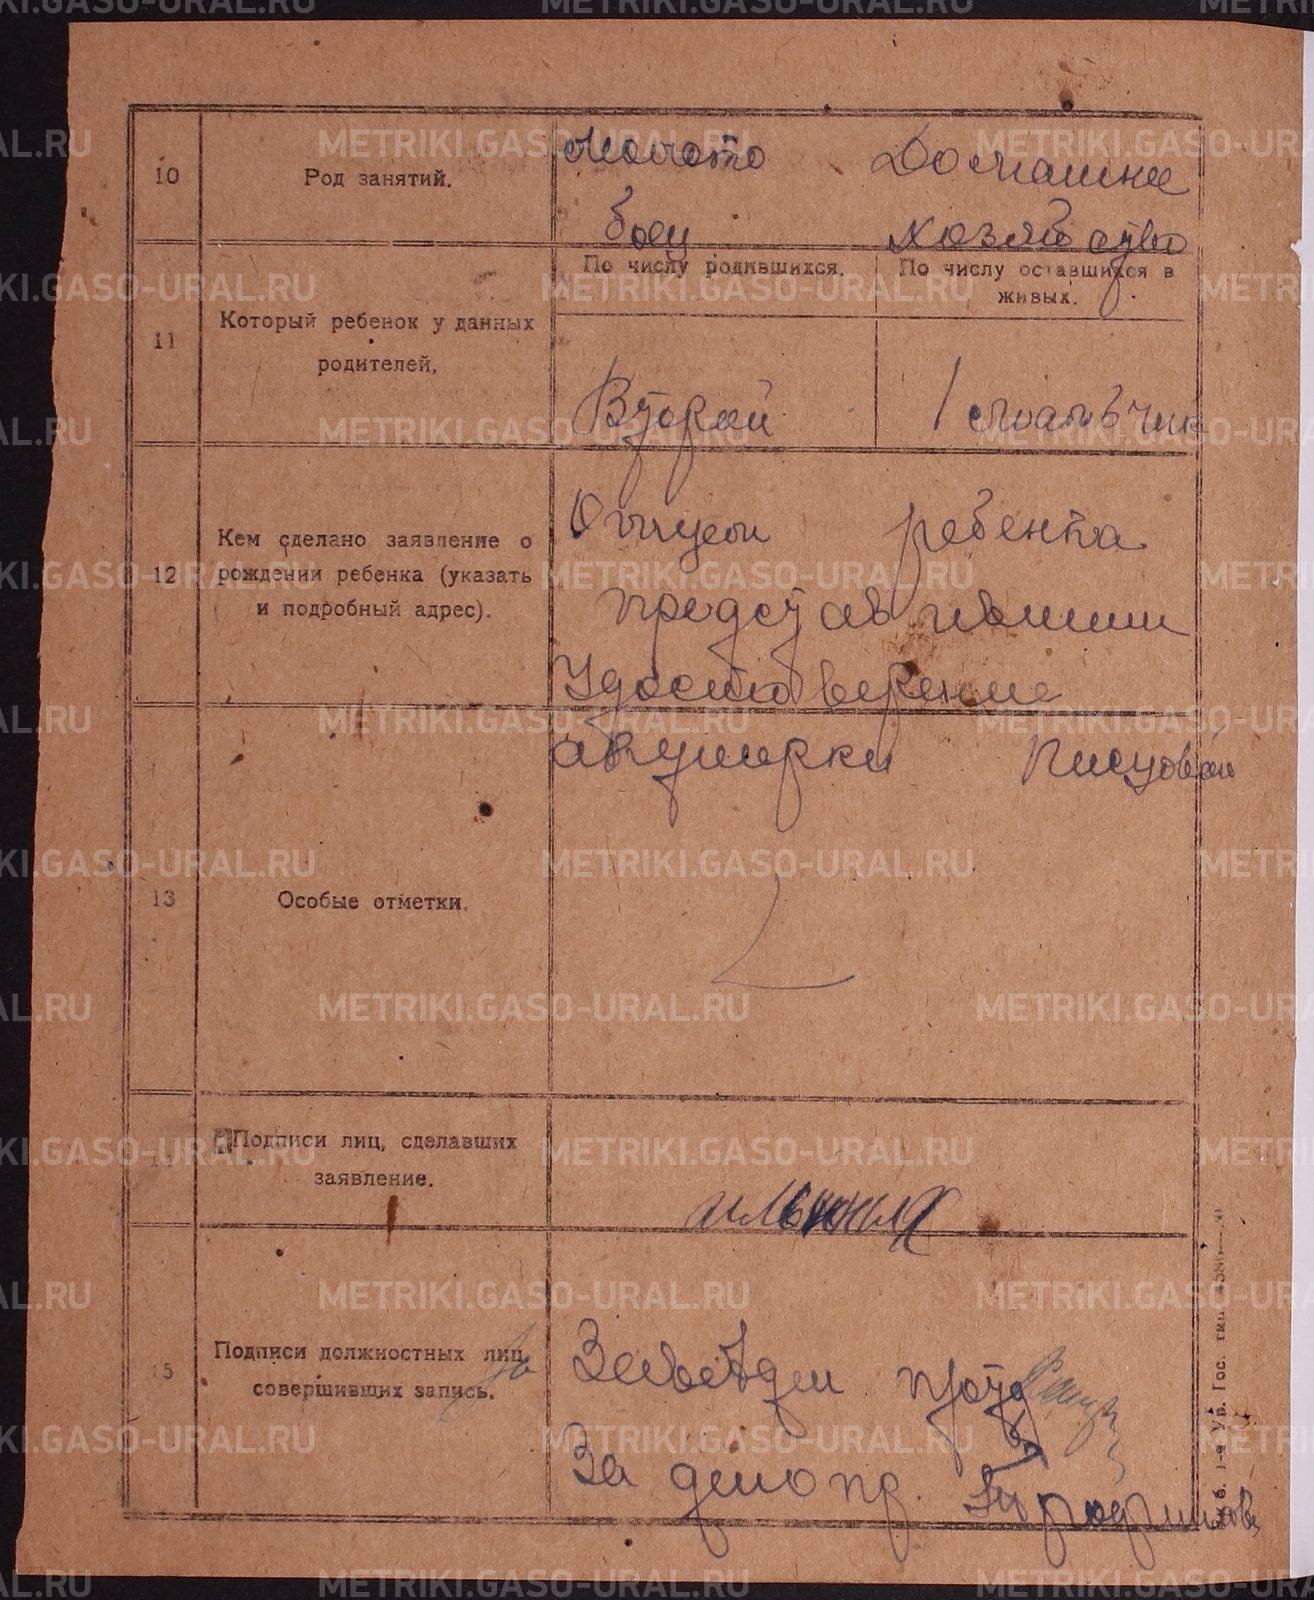 10
Род занятий.
Молото Домашнее
боец хозяйство
11
Который ребенок у данных
родителей.
По числу родившихся.
По числу оставшихся в
живых.
Второй
1
12
Кем сделано заявление о
рождении ребенка (указать
и подробный адрес).
Отцем ребенка
представившим
Удостоверение
акушерки Писцовой
13
Особые отметки.
Подписи лиц, сделавших
заявление.
ильиных
15
Подписи должностных лиц,
совершивших запись.
За
За делопр.
METRIKI.GASO-URAL.RU